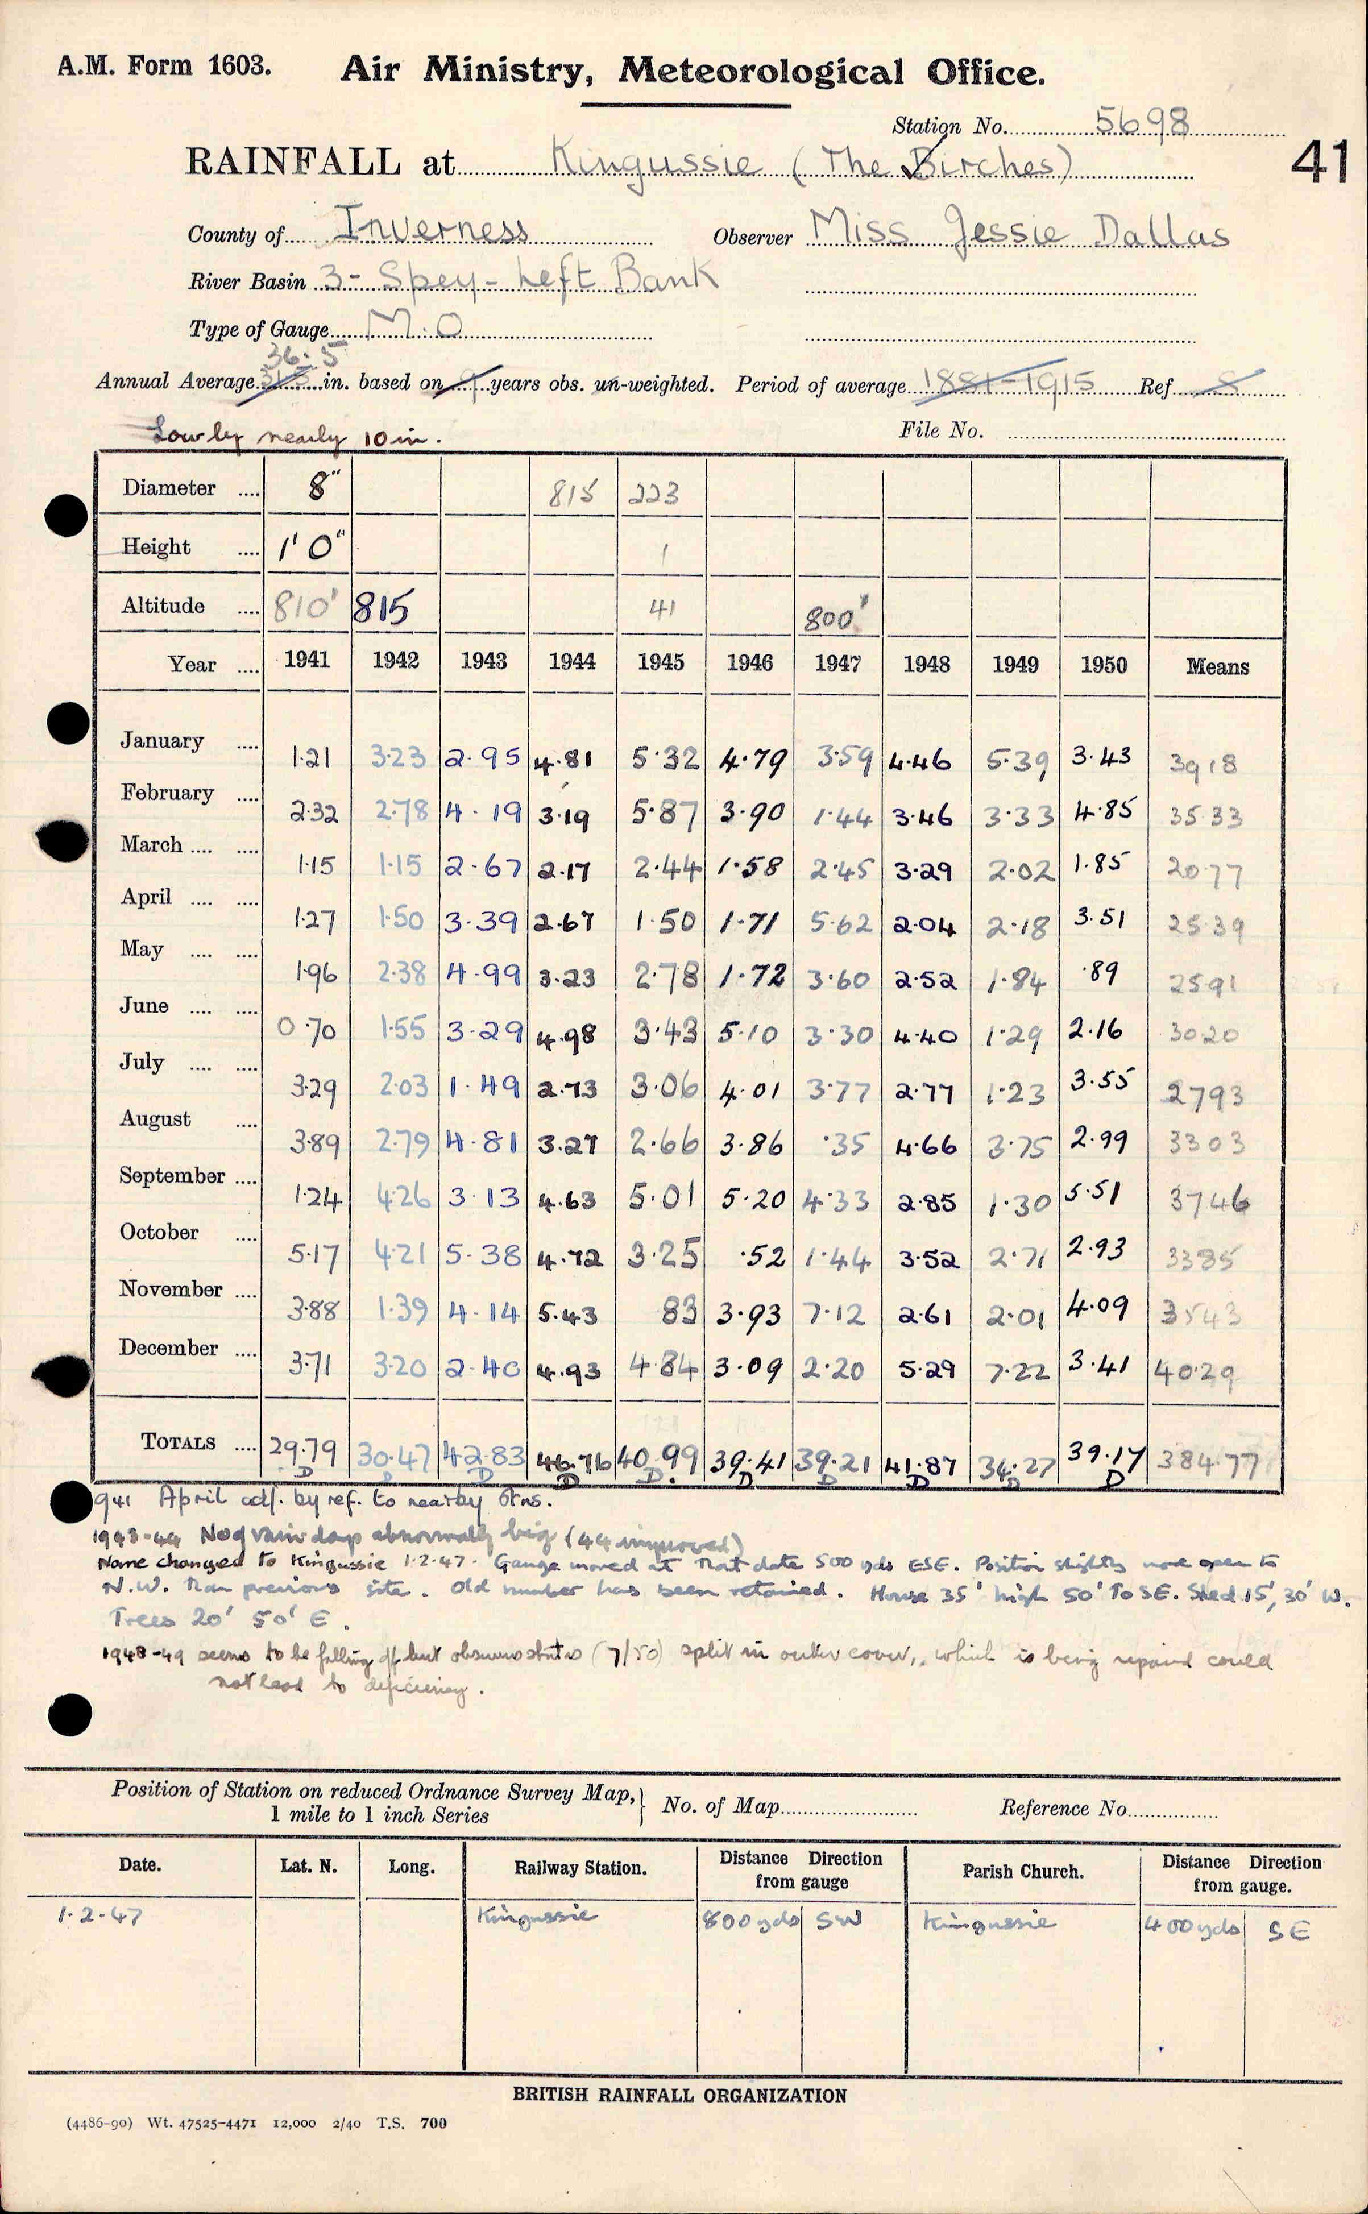 A.M. Form 1603. Air Ministry, Meteorological Office.
Station No. 5698
41
RAINFALL at Kingussie (The Birches)
County of Inverness Observer Miss Jessie Dallas
River Basin 3 - Spey - Left Bank
Type of Gauge M.O
36.5
Annual Average in. based on 9 years obs. un-weighted. Period of average 1881-1915 Ref 8
Low by nearly 10 in. File No.
Diameter 8" 815 223
Height 1' 0" 1
Altitude 810' 815 41 800'
Year 1941 1942 1943 1944 1945 1946 1947 1948 1949 1950 Means
January 1.21 3.23 2.95 4.81 5.32 4.79 3.59 4.46 5.39 3.43 3918
February 2.32 2.78 4.19 3.19 5.87 3.90 1.44 3.46 3.33 4.85 35.33
March 1.15 1.15 2.67 2.17 2.44 1.58 2.45 3.29 2.02 1.85 20.77
April 1.27 1.50 3.39 2.67 1.50 1.71 5.62 2.04 2.18 3.51 25.39
May 1.96 2.38 4.99 3.23 2.78 1.72 3.60 2.52 1.84 .89 2591
June 0.70 1.55 3.29 4.98 3.43 5.10 3.30 4.40 1.29 2.16 3020
July 3.29 2.03 1.49 2.73 3.06 4.01 3.77 2.77 1.23 3.55 2793
August 3.89 2.79 4.81 3.27 2.66 3.86 .35 4.66 3.75 2.99 3303
September 1.24 4.26 3.13 4.63 5.01 5.20 4.33 2.85 1.30 5.51 3746
October 5.17 4.21 5.38 4.72 3.25 .52 1.44 3.52 2.71 2.93 3385
November 3.88 1.39 4.14 5.43 83 3.93 7.12 2.61 2.01 4.09 3543
December 3.71 3.20 2.40 4.93 4.84 3.09 2.20 5.29 7.22 3.41 40.29
TOTALS 29.79 30.47 42.83 46.76 40.99 39.41 39.21 41.87 34.27 39.17 384.77
D D D D. D D D D D
1941 April adj. by ref. to nearby Stns.
1943-44 No of rain days abnormally big (44 improved)
Name changed to Kingussie 1.2.47. Gauge moved at that date 500 yds ESE. Position slightly more open to
N.W. than previous site. Old number has been retained. House 35' high 50' to SE. Shed 15', 30' W.
Trees 20' 50' E.
1948-49 seems to be falling off but observer states (7/50) split in outer cover, which is being repaired could
not lead to deficiency.
Position of Station on reduced Ordnance Survey Map, 1 mile to 1 inch Series } No. of Map Reference No.
Date. Lat. N. Long. Railway Station. Distance Direction from gauge Parish Church. Distance Direction from gauge.
1.2.47 Kingussie 800 yds SW Kingussie 400 yds SE
BRITISH RAINFALL ORGANIZATION
(4486-90) Wt. 47525-4471 12,000 2/40 T.S. 700